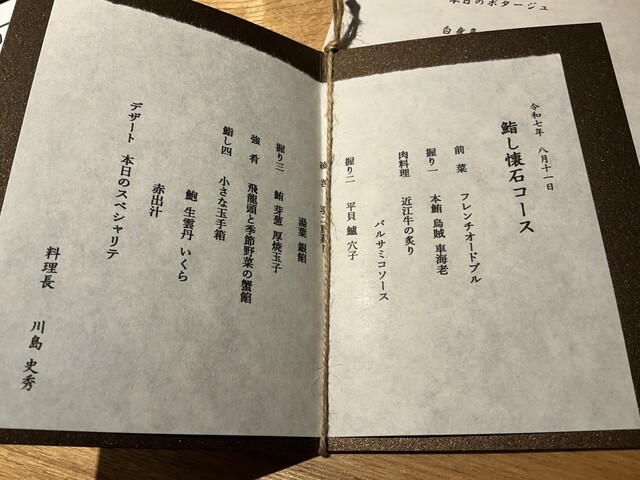 令和七年 八月十一日
鮨し懐石コース
前菜 フレンチオードブル
握り一 本鮪 烏賊 車海老
肉料理 近江牛の炙り
バルサミコソース
握り二 平貝 鱸 穴子
湯葉 銀餡
握り三 鮪 芽葱 厚焼玉子
強肴 飛龍頭と季節野菜の蟹餡
鮨し四 小さな玉手箱
鮑 生雲丹 いくら
赤出汁
デザート 本日のスペシャリテ
料理長 川島 史秀
本日のポタージュ